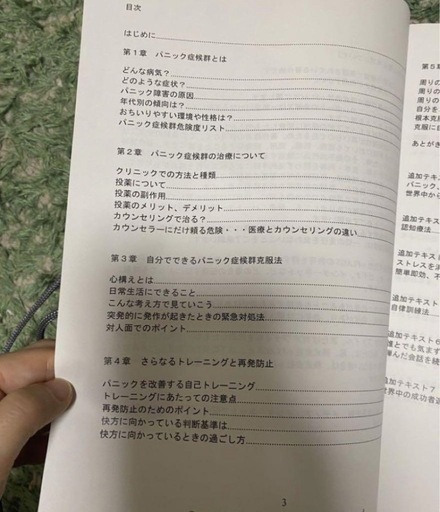 目次
はじめに
第1章 パニック症候群とは
どんな病気？
どのような症状？
パニック障害の原因
年代別の傾向は？
おちいりやすい環境や性格は？
パニック症候群危険度リスト
第2章 パニック症候群の治療について
クリニックでの方法と種類
投薬について
投薬の副作用
投薬のメリット、デメリット
カウンセリングで治る？
カウンセラーにだけ頼る危険・・・医療とカウンセリングの違い
第3章 自分でできるパニック症候群克服法
心構えとは
日常生活にできること
こんな考え方で見ていこう
突発的に発作が起きたときの緊急対処法
対人面でのポイント
第4章 さらなるトレーニングと再発防止
パニックを改善する自己トレーニング
トレーニングにあたっての注意点
再発防止のためのポイント
快方に向かっている判断基準は
快方に向かっているときの過ごし方
3
第5
周りの
周りの
周りの
自分を
根本克
克服に
あとがき
追加テキス
パニック、
世界中から
追加テキス
認知療法
追加テキスト
ストレスを
簡単即効、
追加テキスト
自律訓練法
追加テキスト6
とでも気ます
んだ会話を続
追加テキスト7
世界中の成功者